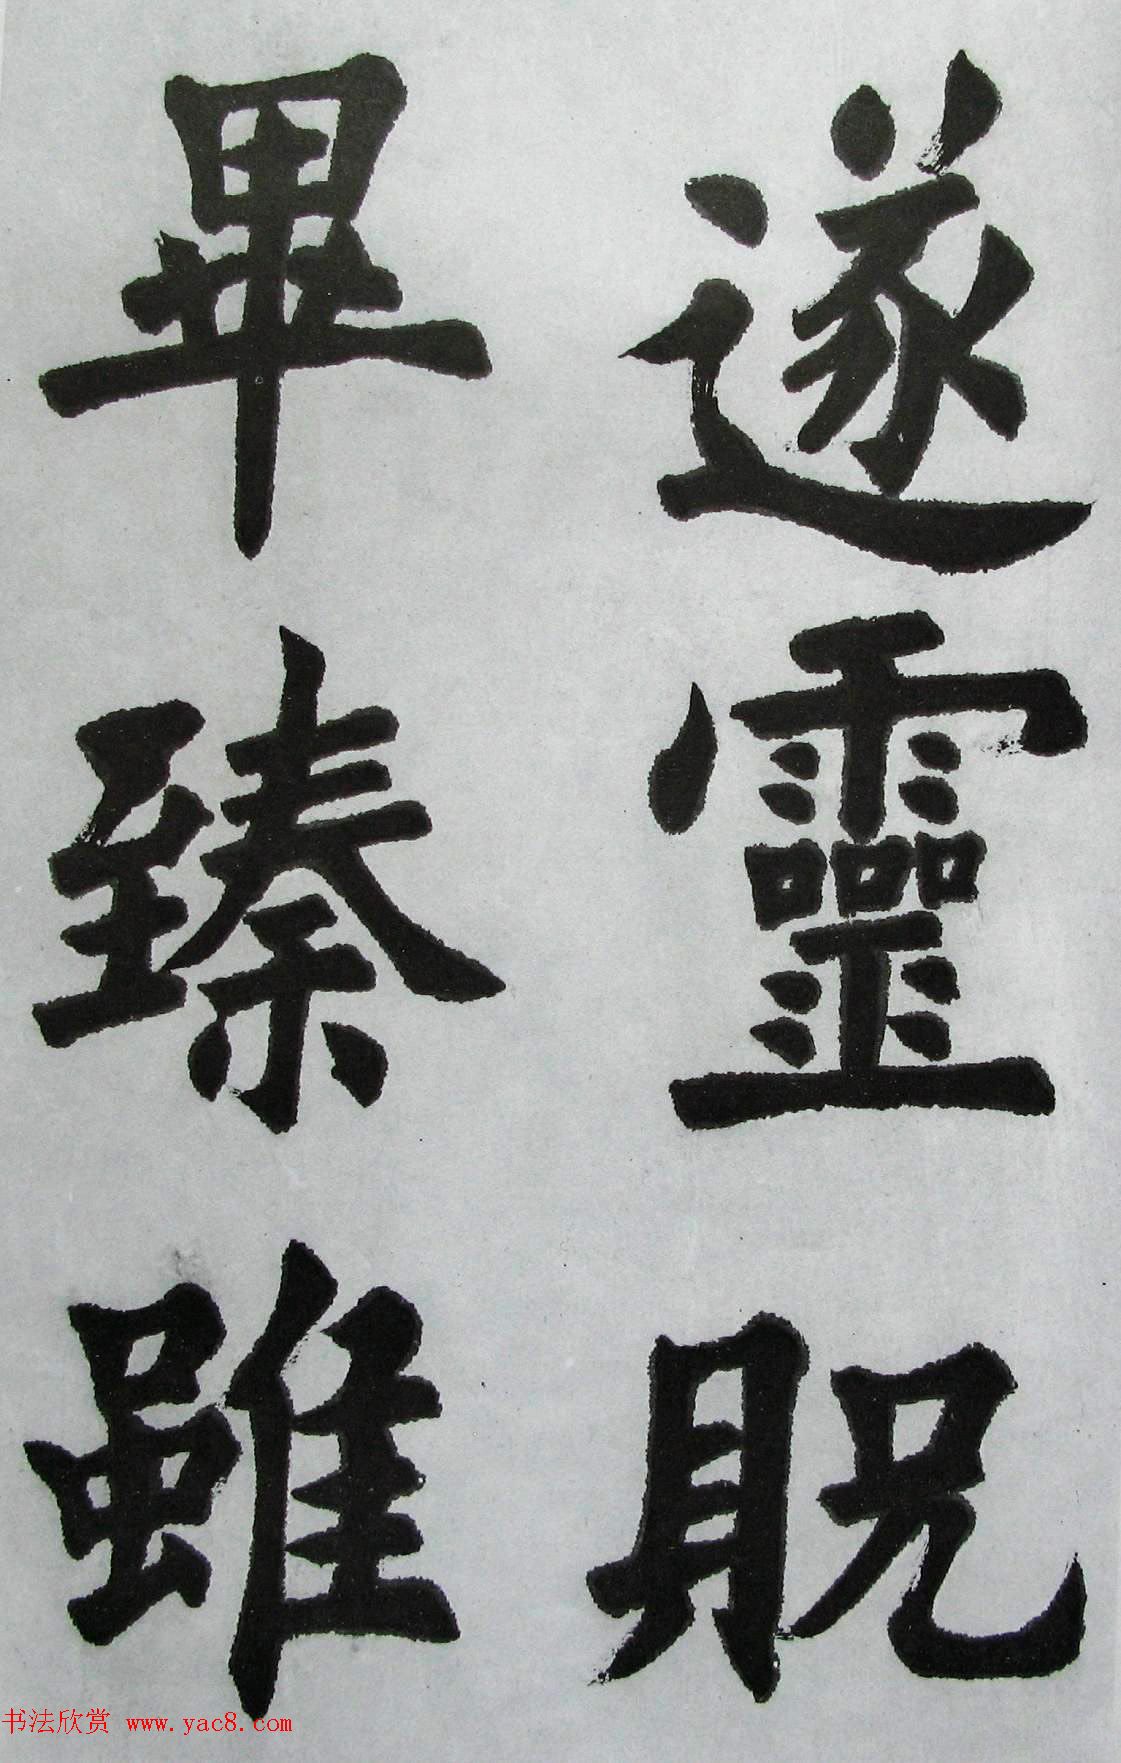 遂靈貺
畢臻雖
书法欣赏 www.yac8.com